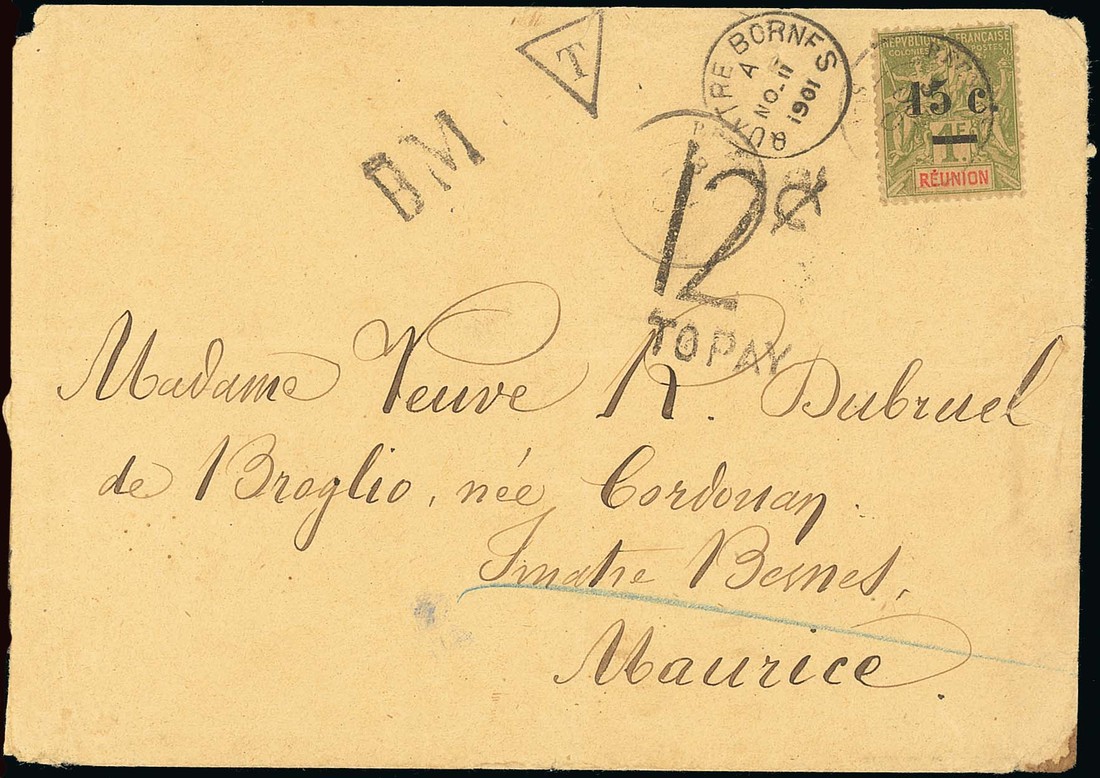 T
BM
QUATRE BORNES
A
NO 11
1901
RÉPUBLIQUE FRANÇAISE
COLONIES POSTES
15 c.
1F.
RÉUNION
12 c
TO PAY
Madame Veuve R. Dubruel
de Broglio, née Cordouan.
Quatre Bornes,
Maurice.